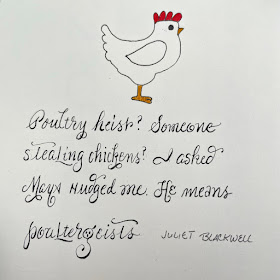 Poultry heist? Someone
stealing chickens? I asked
Maya nudged me. He means
poultergeists
JULIET BLACKWELL